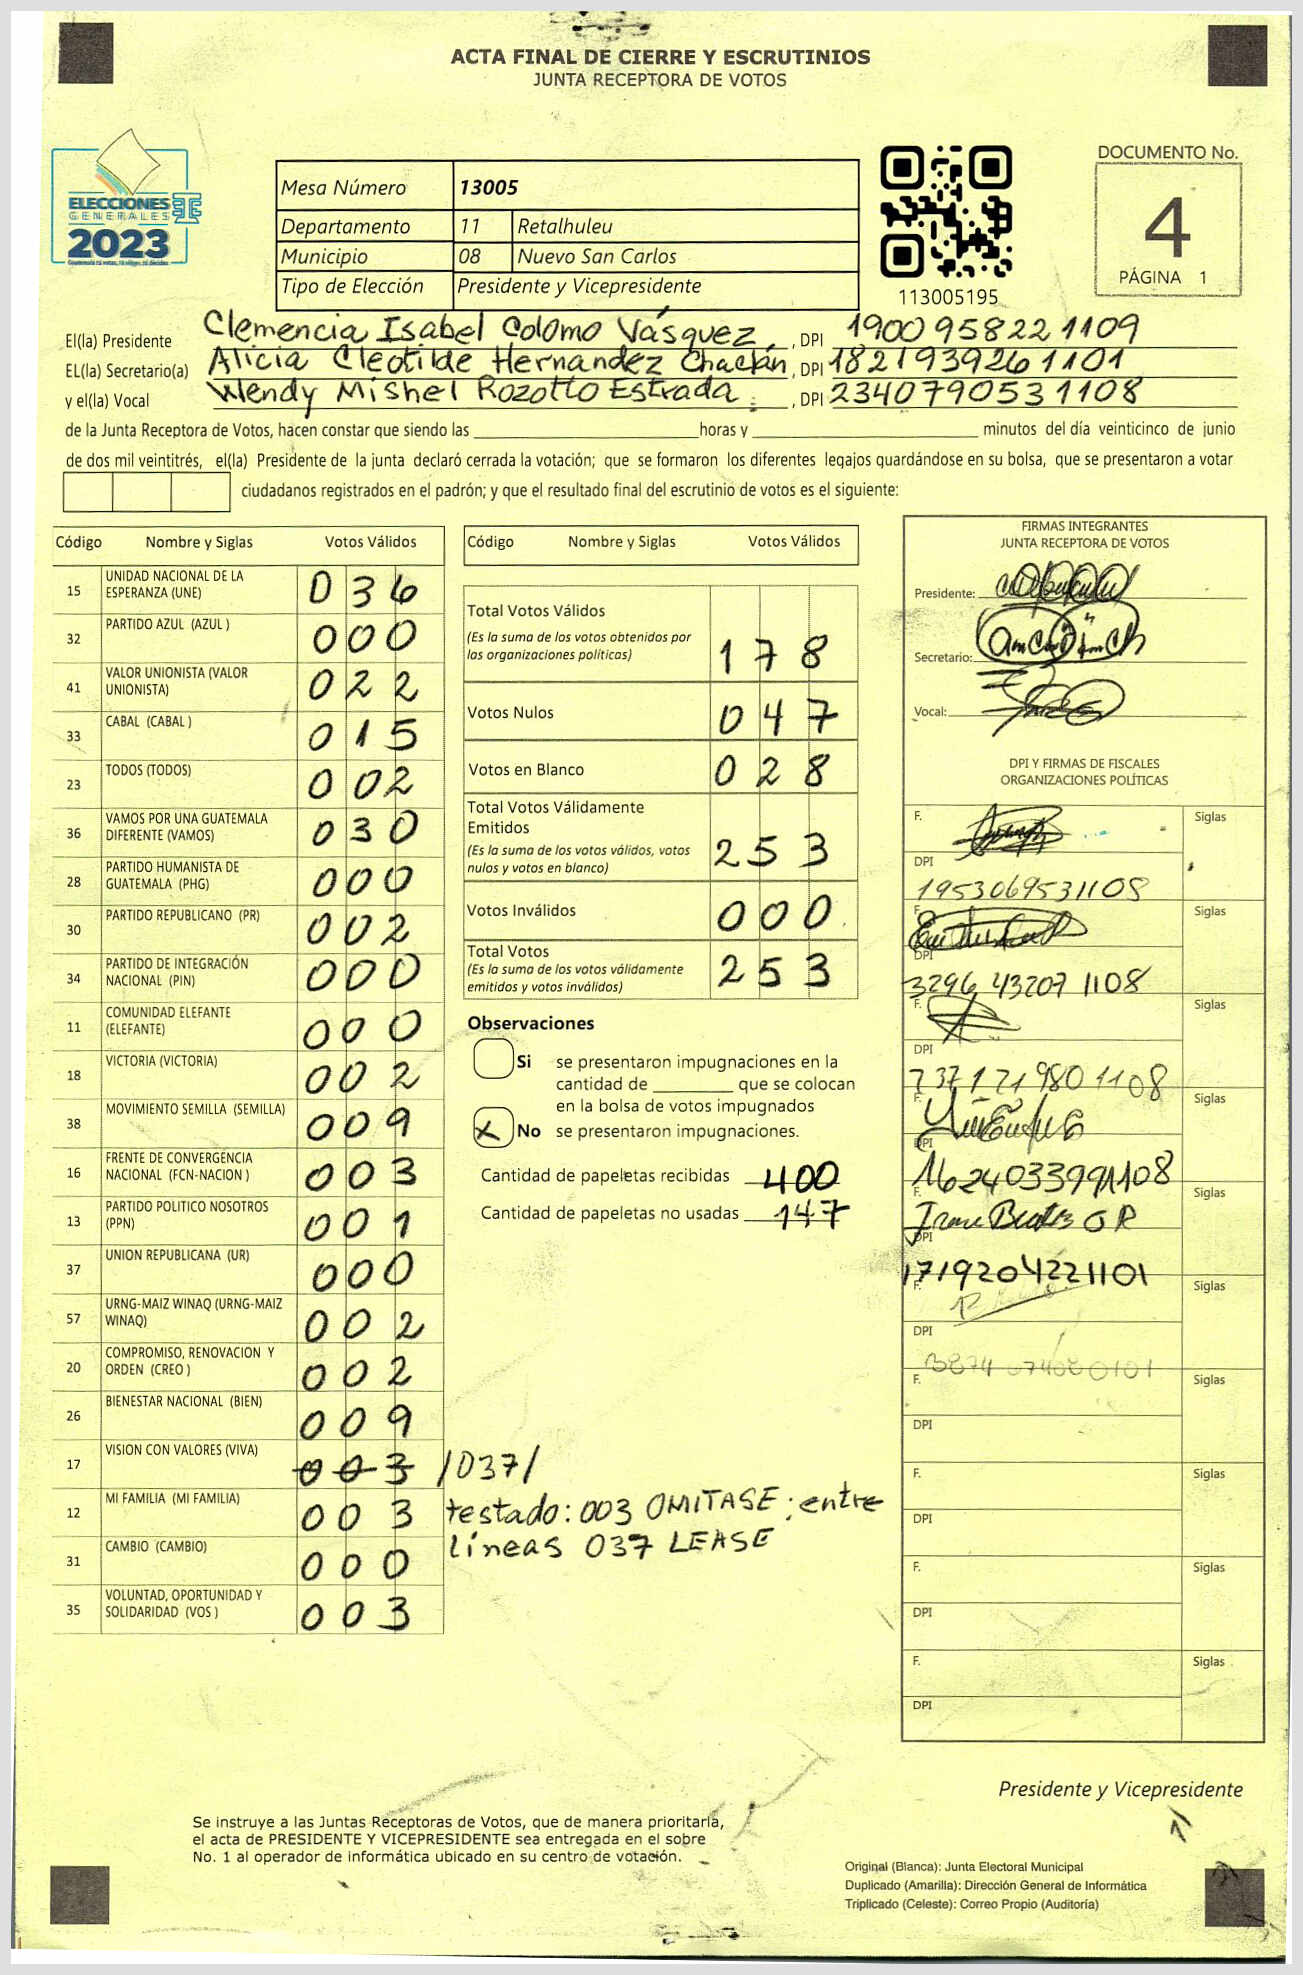 ACTA FINAL DE CIERRE Y ESCRUTINIOS
JUNTA RECEPTORA DE VOTOS
ELECCIONES
GENERALES
2023
Mesa Número 13005
Departamento 11 Retalhuleu
Municipio 08 Nuevo San Carlos
Tipo de Elección Presidente y Vicepresidente
113005195
DOCUMENTO No.
4
PÁGINA 1
El(la) Presidente Clemencia Isabel Colomo Vásquez, DPI 1900 95822 1109
EL(la) Secretario(a) Alicia Cleotilde Hernandez Chaclán, DPI 182193926 1101
y el(la) Vocal Wendy Mishel Rozotto Estrada, DPI 2340790531108
de la Junta Receptora de Votos, hacen constar que siendo las horas y minutos del día veinticinco de junio
de dos mil veintitrés, el(la) Presidente de la junta declaró cerrada la votación; que se formaron los diferentes legajos guardándose en su bolsa, que se presentaron a votar
ciudadanos registrados en el padrón; y que el resultado final del escrutinio de votos es el siguiente:
Código Nombre y Siglas Votos Válidos
15 UNIDAD NACIONAL DE LA ESPERANZA (UNE) 036
32 PARTIDO AZUL (AZUL ) 000
41 VALOR UNIONISTA (VALOR UNIONISTA) 022
33 CABAL (CABAL ) 015
23 TODOS (TODOS) 002
36 VAMOS POR UNA GUATEMALA DIFERENTE (VAMOS) 030
28 PARTIDO HUMANISTA DE GUATEMALA (PHG) 000
30 PARTIDO REPUBLICANO (PR) 002
34 PARTIDO DE INTEGRACIÓN NACIONAL (PIN) 000
11 COMUNIDAD ELEFANTE (ELEFANTE) 000
18 VICTORIA (VICTORIA) 002
38 MOVIMIENTO SEMILLA (SEMILLA) 009
16 FRENTE DE CONVERGENCIA NACIONAL (FCN-NACION ) 003
13 PARTIDO POLITICO NOSOTROS (PPN) 001
37 UNION REPUBLICANA (UR) 000
57 URNG-MAIZ WINAQ (URNG-MAIZ WINAQ) 002
20 COMPROMISO, RENOVACION Y ORDEN (CREO ) 002
26 BIENESTAR NACIONAL (BIEN) 009
17 VISION CON VALORES (VIVA) 003 /037/
12 MI FAMILIA (MI FAMILIA) 003
31 CAMBIO (CAMBIO) 000
35 VOLUNTAD, OPORTUNIDAD Y SOLIDARIDAD (VOS ) 003
testado: 003 OMITASE; entre
líneas 037 LEASE
Código Nombre y Siglas Votos Válidos
Total Votos Válidos
(Es la suma de los votos obtenidos por
las organizaciones políticas) 178
Votos Nulos 047
Votos en Blanco 028
Total Votos Válidamente
Emitidos
(Es la suma de los votos válidos, votos
nulos y votos en blanco) 253
Votos Inválidos 000
Total Votos
(Es la suma de los votos válidamente
emitidos y votos inválidos) 253
Observaciones
Si se presentaron impugnaciones en la
cantidad de que se colocan
en la bolsa de votos impugnados
X No se presentaron impugnaciones.
Cantidad de papeletas recibidas 400
Cantidad de papeletas no usadas 147
FIRMAS INTEGRANTES
JUNTA RECEPTORA DE VOTOS
Presidente:
Secretario:
Vocal:
DPI Y FIRMAS DE FISCALES
ORGANIZACIONES POLÍTICAS
F. Siglas
DPI
1953069531108
F. Siglas
DPI
3296 43207 1108
F. Siglas
DPI
737171980 1108
F. Siglas
DPI
1624033991108
F. Siglas
DPI
1719204221101
F. Siglas
DPI
F. Siglas
DPI
F. Siglas
DPI
F. Siglas
DPI
F. Siglas
DPI
Presidente y Vicepresidente
Se instruye a las Juntas Receptoras de Votos, que de manera prioritaria,
el acta de PRESIDENTE Y VICEPRESIDENTE sea entregada en el sobre
No. 1 al operador de informática ubicado en su centro de votación.
Original (Blanca): Junta Electoral Municipal
Duplicado (Amarilla): Dirección General de Informática
Triplicado (Celeste): Correo Propio (Auditoría)